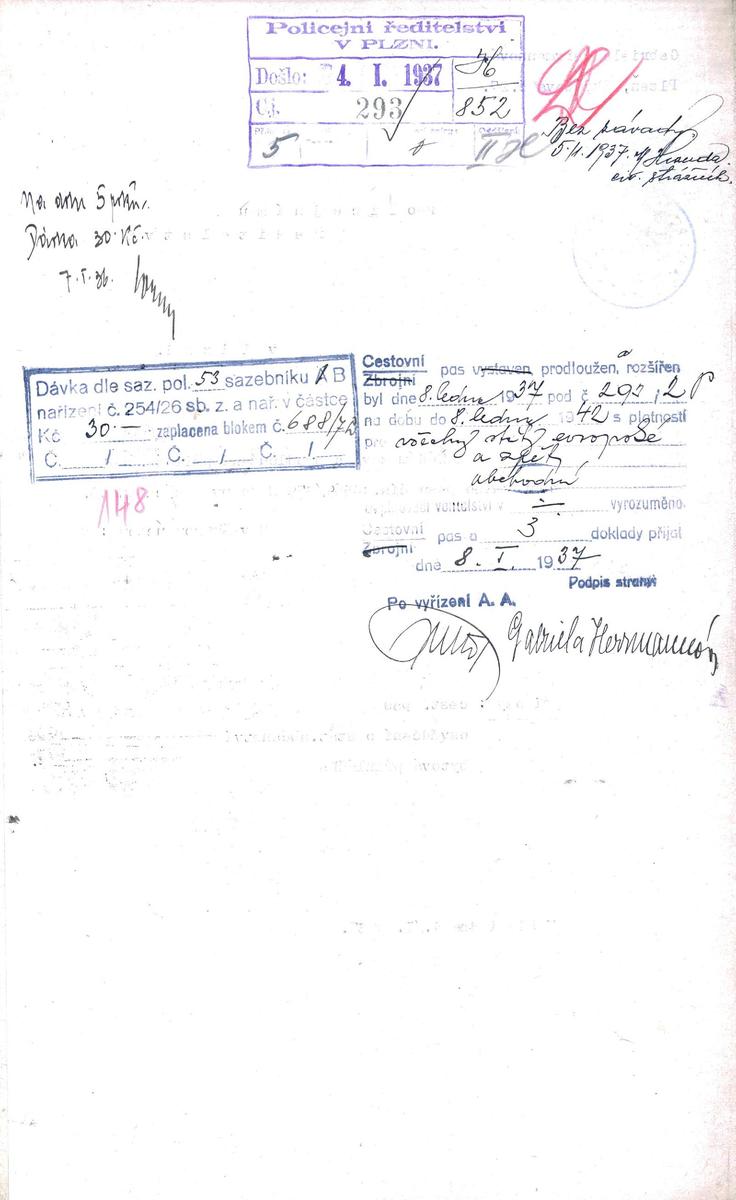 Policejní ředitelství
V PLZNI.
Došlo: 4. I. 1937
Čj. 293
46
852
5
II
Bez závady
5/I. 1937.
civ. strážník.
Na dobu 5 roků.
Dávka 30 Kč.
7. I. 36.
Dávka dle saz. pol. 53 sazebníku A B
nařízení č. 254/26 sb. z. a nař. v částce
Kč 30.— zaplacena blokem č. 688/72
Č. / Č. / Č. /
148
Cestovní
Zbrojní
pas vystaven prodloužen, a rozšířen
byl dne 8. ledna 1937 pod č 293
na dobu do 8. ledna 1942 s platností
pro všechny státy evropské
a zpět
obchodní
velitelství v —.— vyrozuměno.
Cestovní
Zbrojní
pas a 3 doklady přijal
dne 8. I. 1937
Podpis strany:
Po vyřízení A. A.
Gabriela Herrmannová